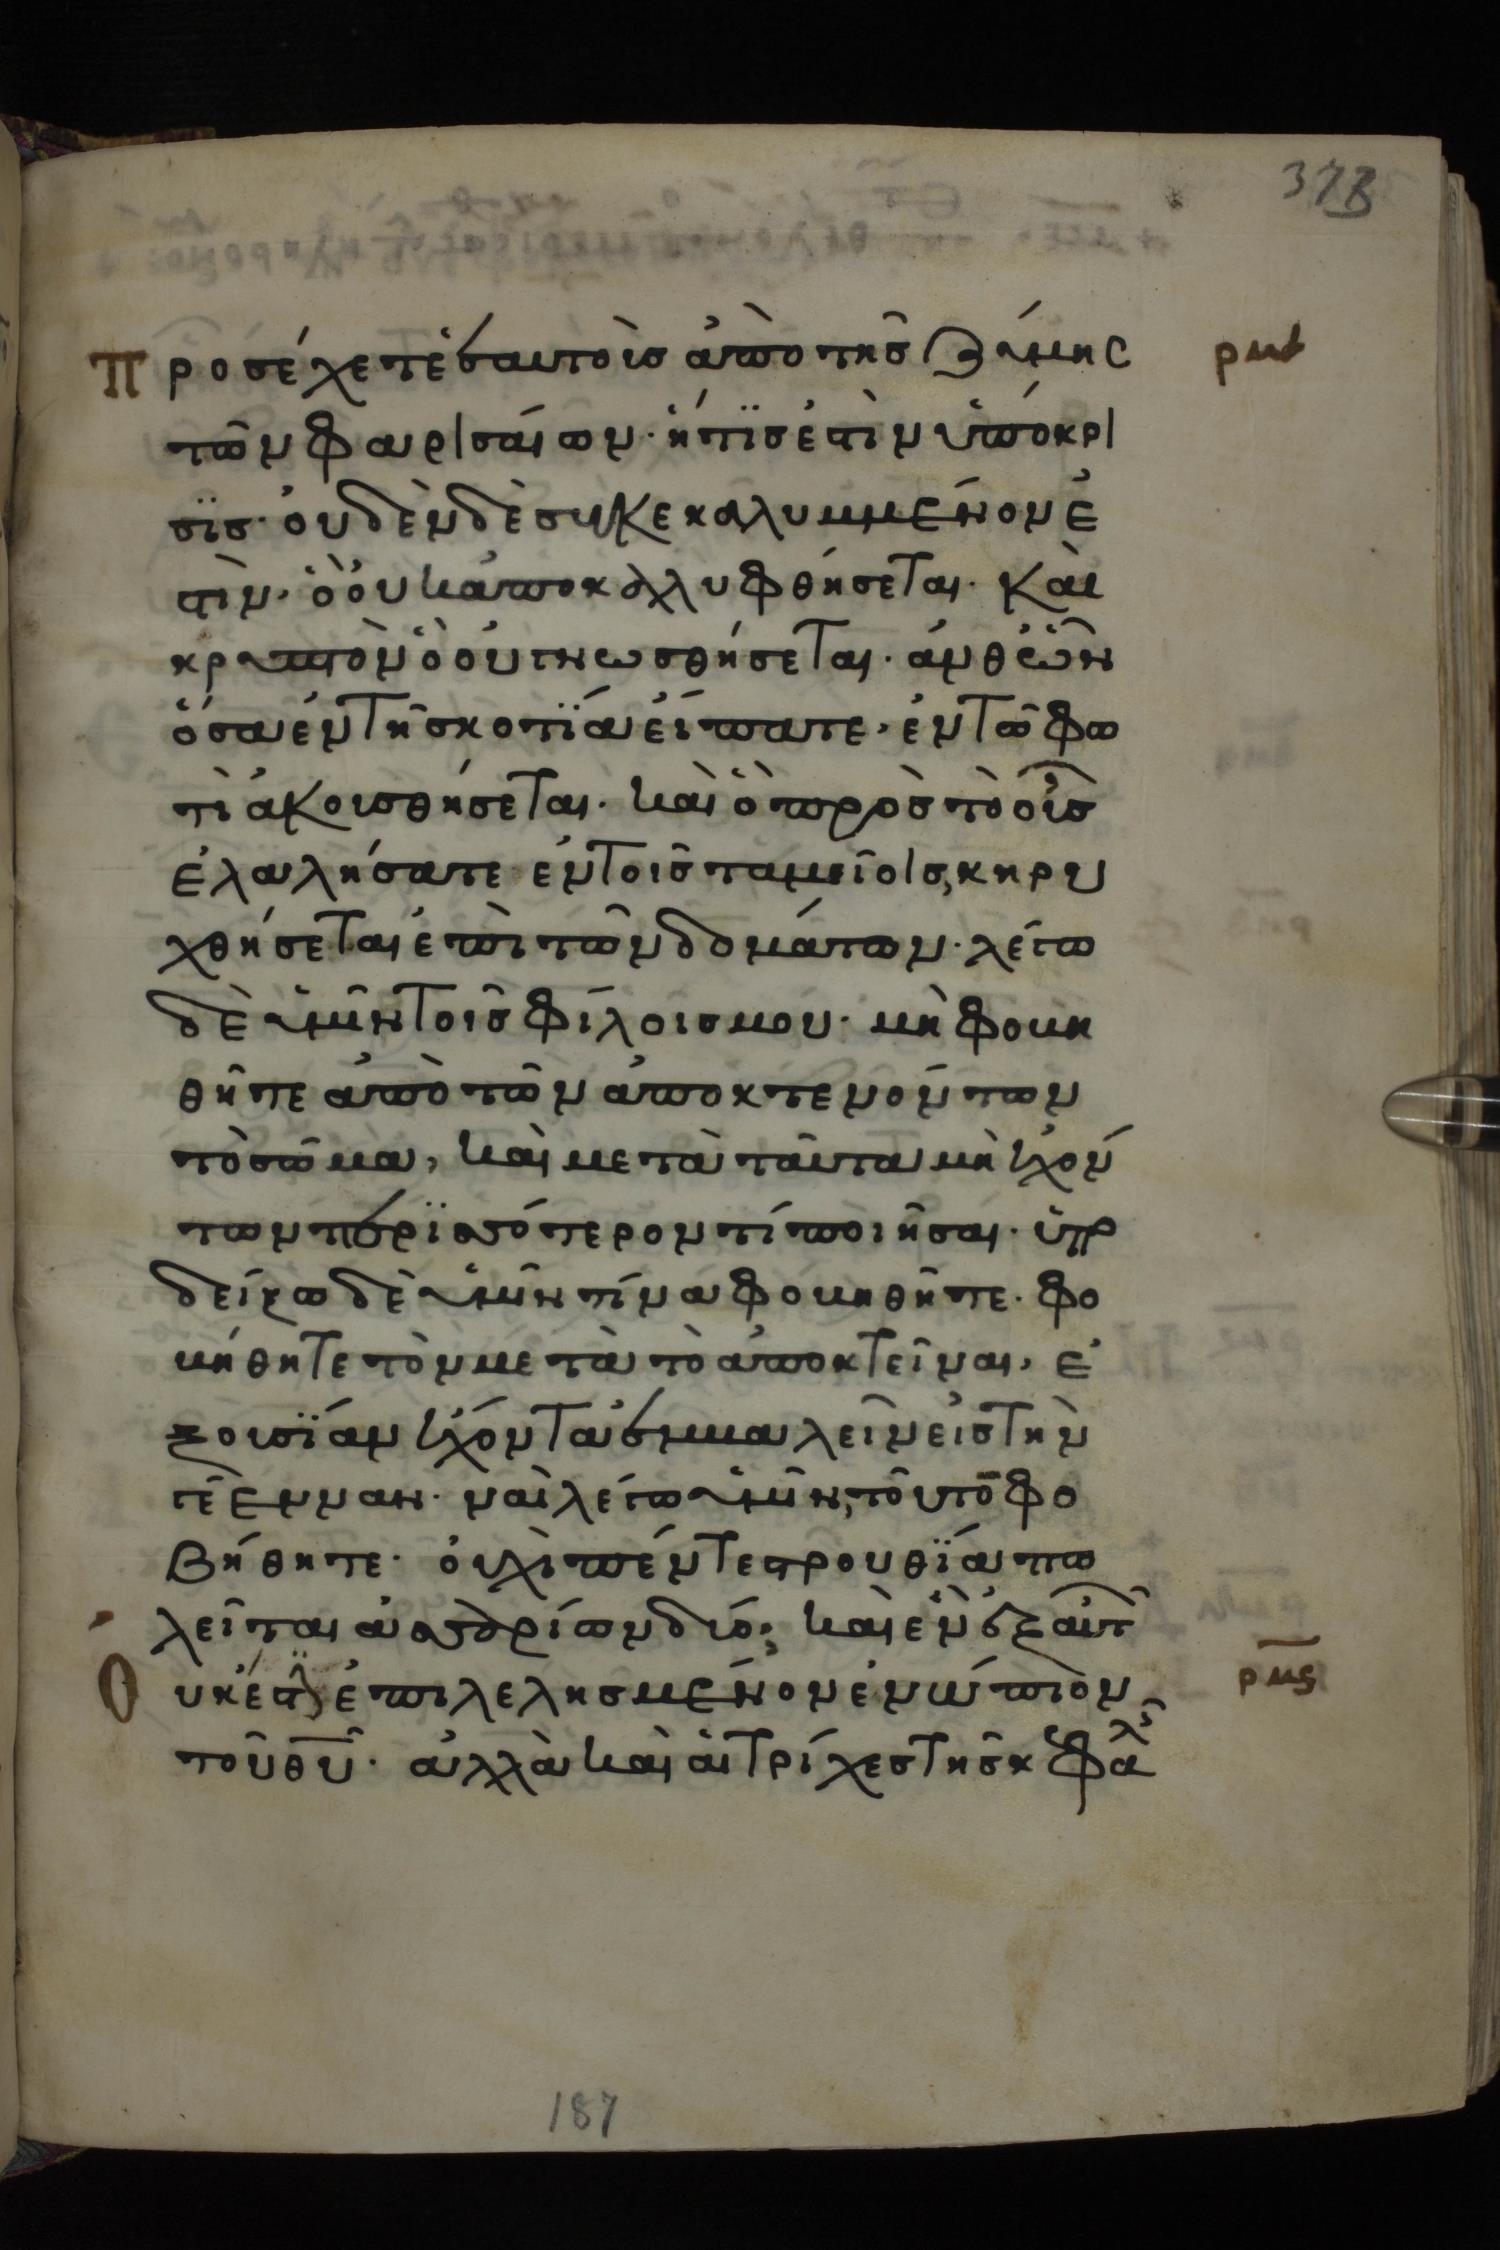 373
Προσέχετε ἑαυτοῖς ἀπὸ τῆς ζύμης
τῶν φαρισαίων· ἥτις ἐστὶν ὑπόκρι
σις· οὐδὲν δὲ συγκεκαλυμμένον ἐ
στὶν, ὃ οὐκ ἀποκαλυφθήσεται· καὶ
κρυπτὸν ὃ οὐ γνωσθήσεται· ἀνθ ὧν
ὅσα ἐν τῆ σκοτία εἴπατε, ἐν τῶ φω
τὶ ἀκουσθήσεται· καὶ ὃ πρὸς τὸ οὖς
ἐλαλήσατε ἐν τοῖς ταμείοις, κηρυ
χθήσεται ἐπὶ τῶν δομάτων· λέγω
δὲ ὑμῖν τοῖς φίλοις μου· μὴ φοβη
θῆτε ἀπὸ τῶν ἀποκτενόντων
τὸ σῶμα, καὶ μετὰ ταῦτα μὴ ἐχόν
των περισσότερον τί ποιῆσαι· ὑπο
δείξω δὲ ὑμῖν τίνα φοβηθῆτε· φο
βήθητε τὸν μετὰ τὸ ἀποκτεῖναι, ἐ
ξουσίαν ἔχοντα ἐμβαλεῖν εἰς τὴν
γέενναν· ναὶ λέγω ὑμῖν, τοῦτον φο
βήθητε· οὐχὶ πέντε στρουθία πω
λεῖται ἀσσαρίων δύο; καὶ ἓν ἐξ αὐτ
Οὐκ ἔστιν ἐπιλελησμένον ἐνώπιον
τοῦ θυ· ἀλλὰ καὶ αἱ τρίχες τῆς κεφαλ
ρμε
ρμς
187